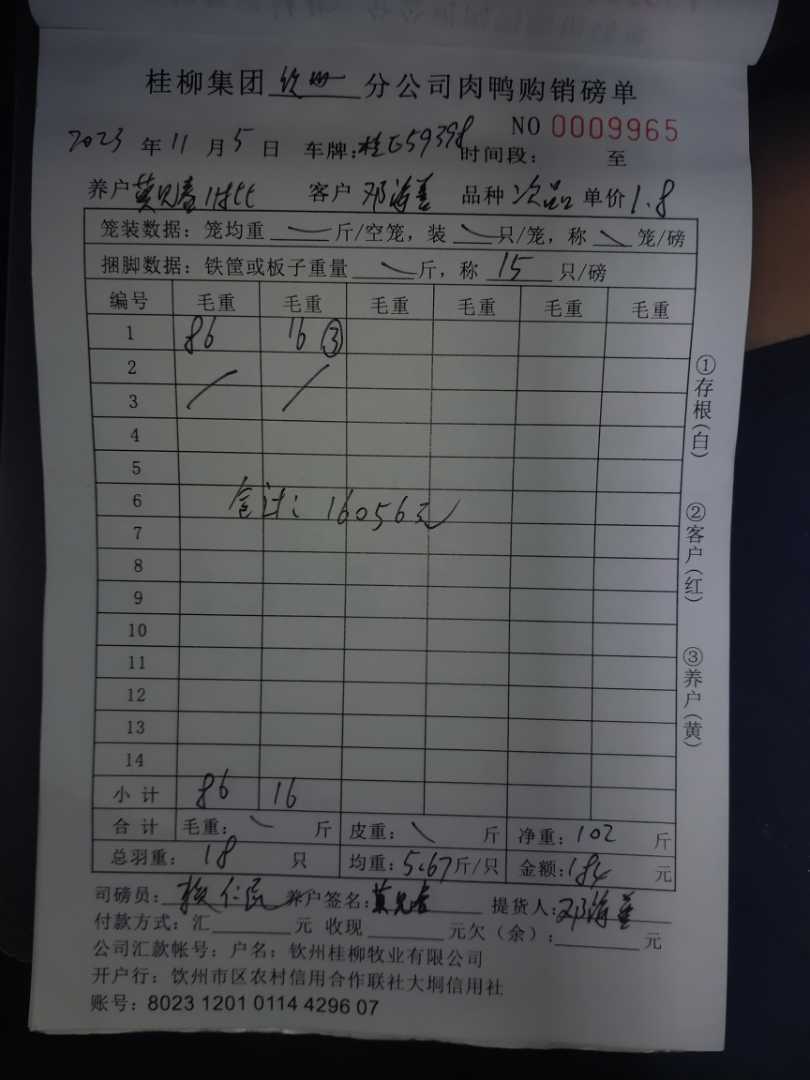 桂柳集团 钦州 分公司肉鸭购销磅单
NO 0009965
2023 年 11 月 5 日 车牌:桂E59398 时间段: 至
养户 客户 邓海 品种 次品 单价 1.8
笼装数据:笼均重 斤/空笼,装 只/笼,称 笼/磅
捆脚数据:铁筐或板子重量 斤,称 15 只/磅
编号 毛重 毛重 毛重 毛重 毛重 毛重
1 86 16 ③
2
3
4
5
6
合计:16056元
7
8
9
10
11
12
13
14
小计 86 16
合计 毛重: 斤 皮重: 斤 净重:102 斤
总羽重: 18 只 均重:5.67斤/只 金额:184 元
司磅员: 养户签名: 提货人:邓海
付款方式:汇 元 收现 元欠(余): 元
公司汇款帐号:户名:钦州桂柳牧业有限公司
开户行:钦州市区农村信用合作联社大垌信用社
账号:8023 1201 0114 4296 07
①存根(白)
②客户(红)
③养户(黄)